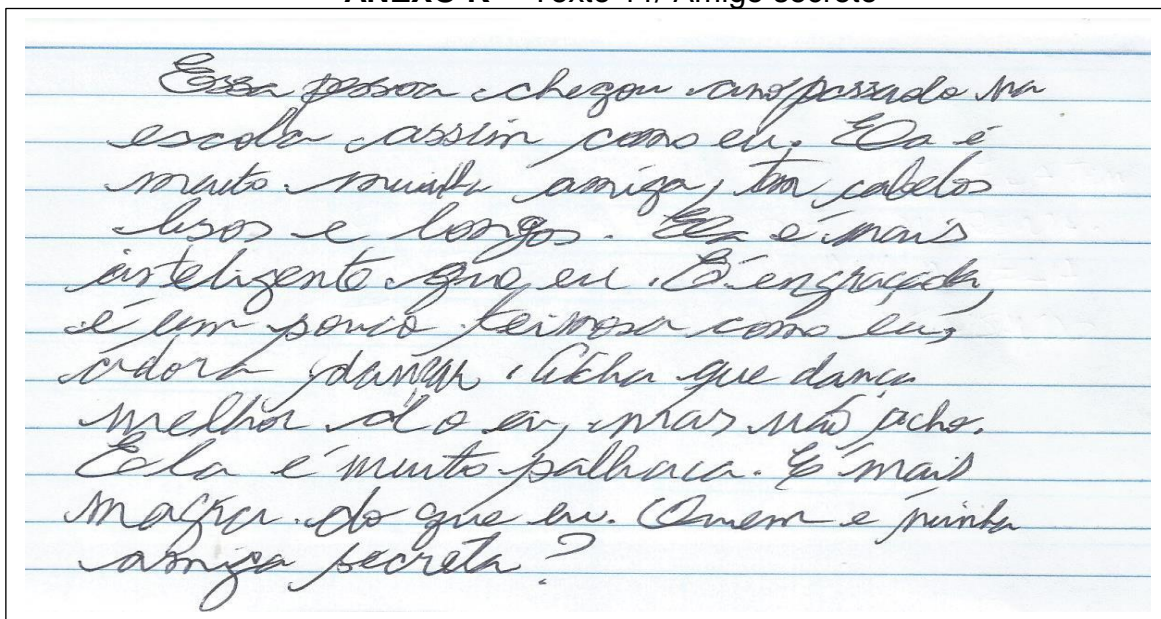 ANEXO K – Texto 11/ Amigo secreto
Essa pessoa chegou ano passado na
escola assim como eu. Ela é
muito minha amiga, tem cabelos
lisos e longos. Ela é mais
inteligente que eu. É engraçada,
é um pouco teimosa como eu,
adora dançar. Acha que dança
melhor do eu, mas não acho.
Ela é muito palhaca. É mais
magra do que eu. Quem é minha
amiga secreta?